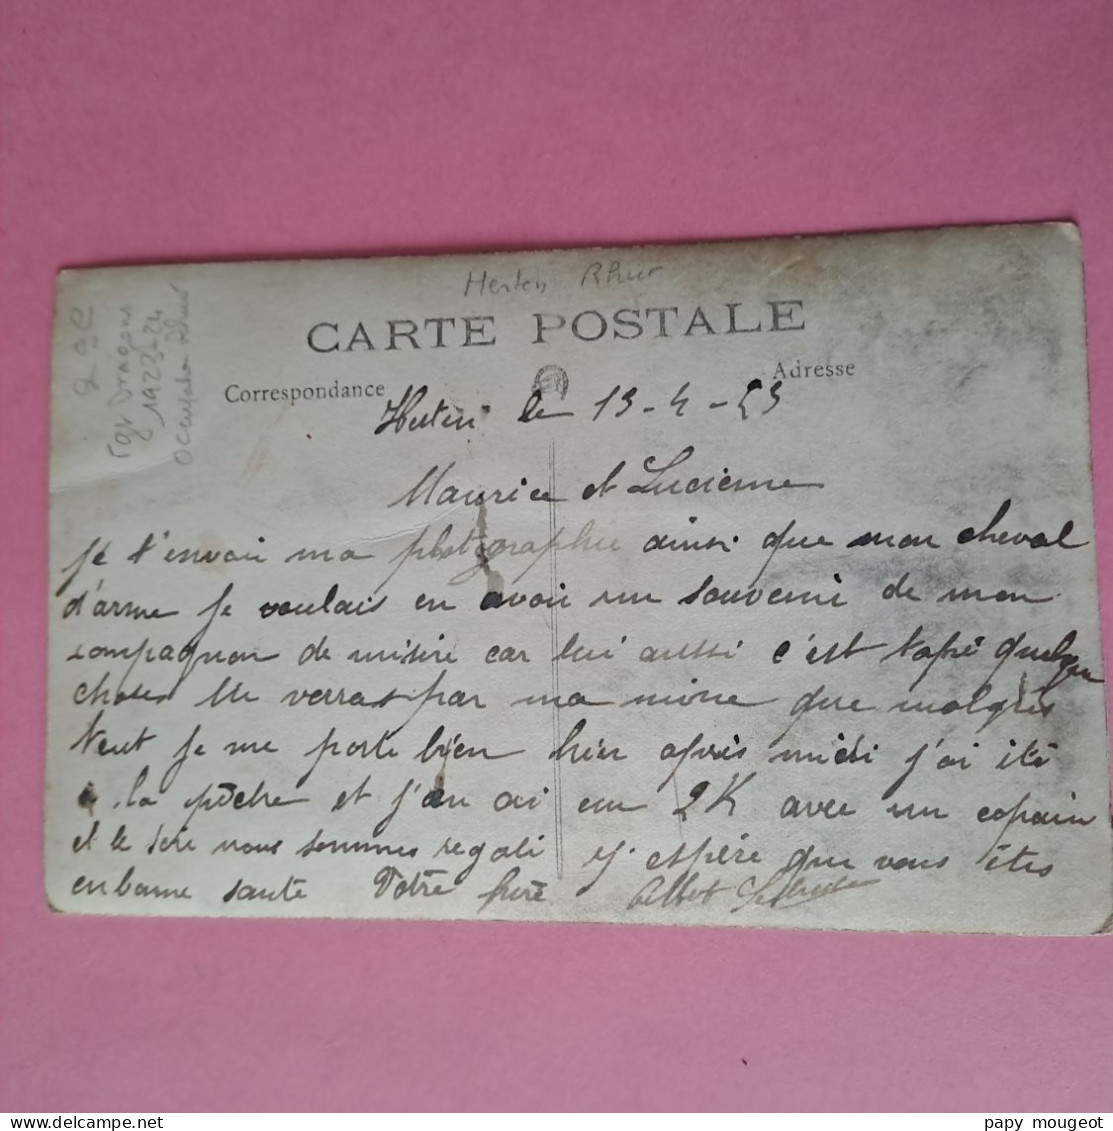 Herten Rhur
CARTE POSTALE
Correspondance
Adresse
2 ème
rgt Dragons
1923-24
occupation Rhur
Herten le 13-4-23
Maurice et Lucienne
je t'envoie ma photographie ainsi que mon cheval
d'arme je voulais en avoir un souvenir de mon
compagnon de misère car lui aussi c'est tapé quelque
choses tu verras par ma mine que malgrés
tout je me porte bien hier après midi j'ai été
a la pêche et j'en ai eu 2K avec un copain
et le soir nous sommes regali j'espère que vous êtes
en bonne santé Votre frère Albert
papy mougeot